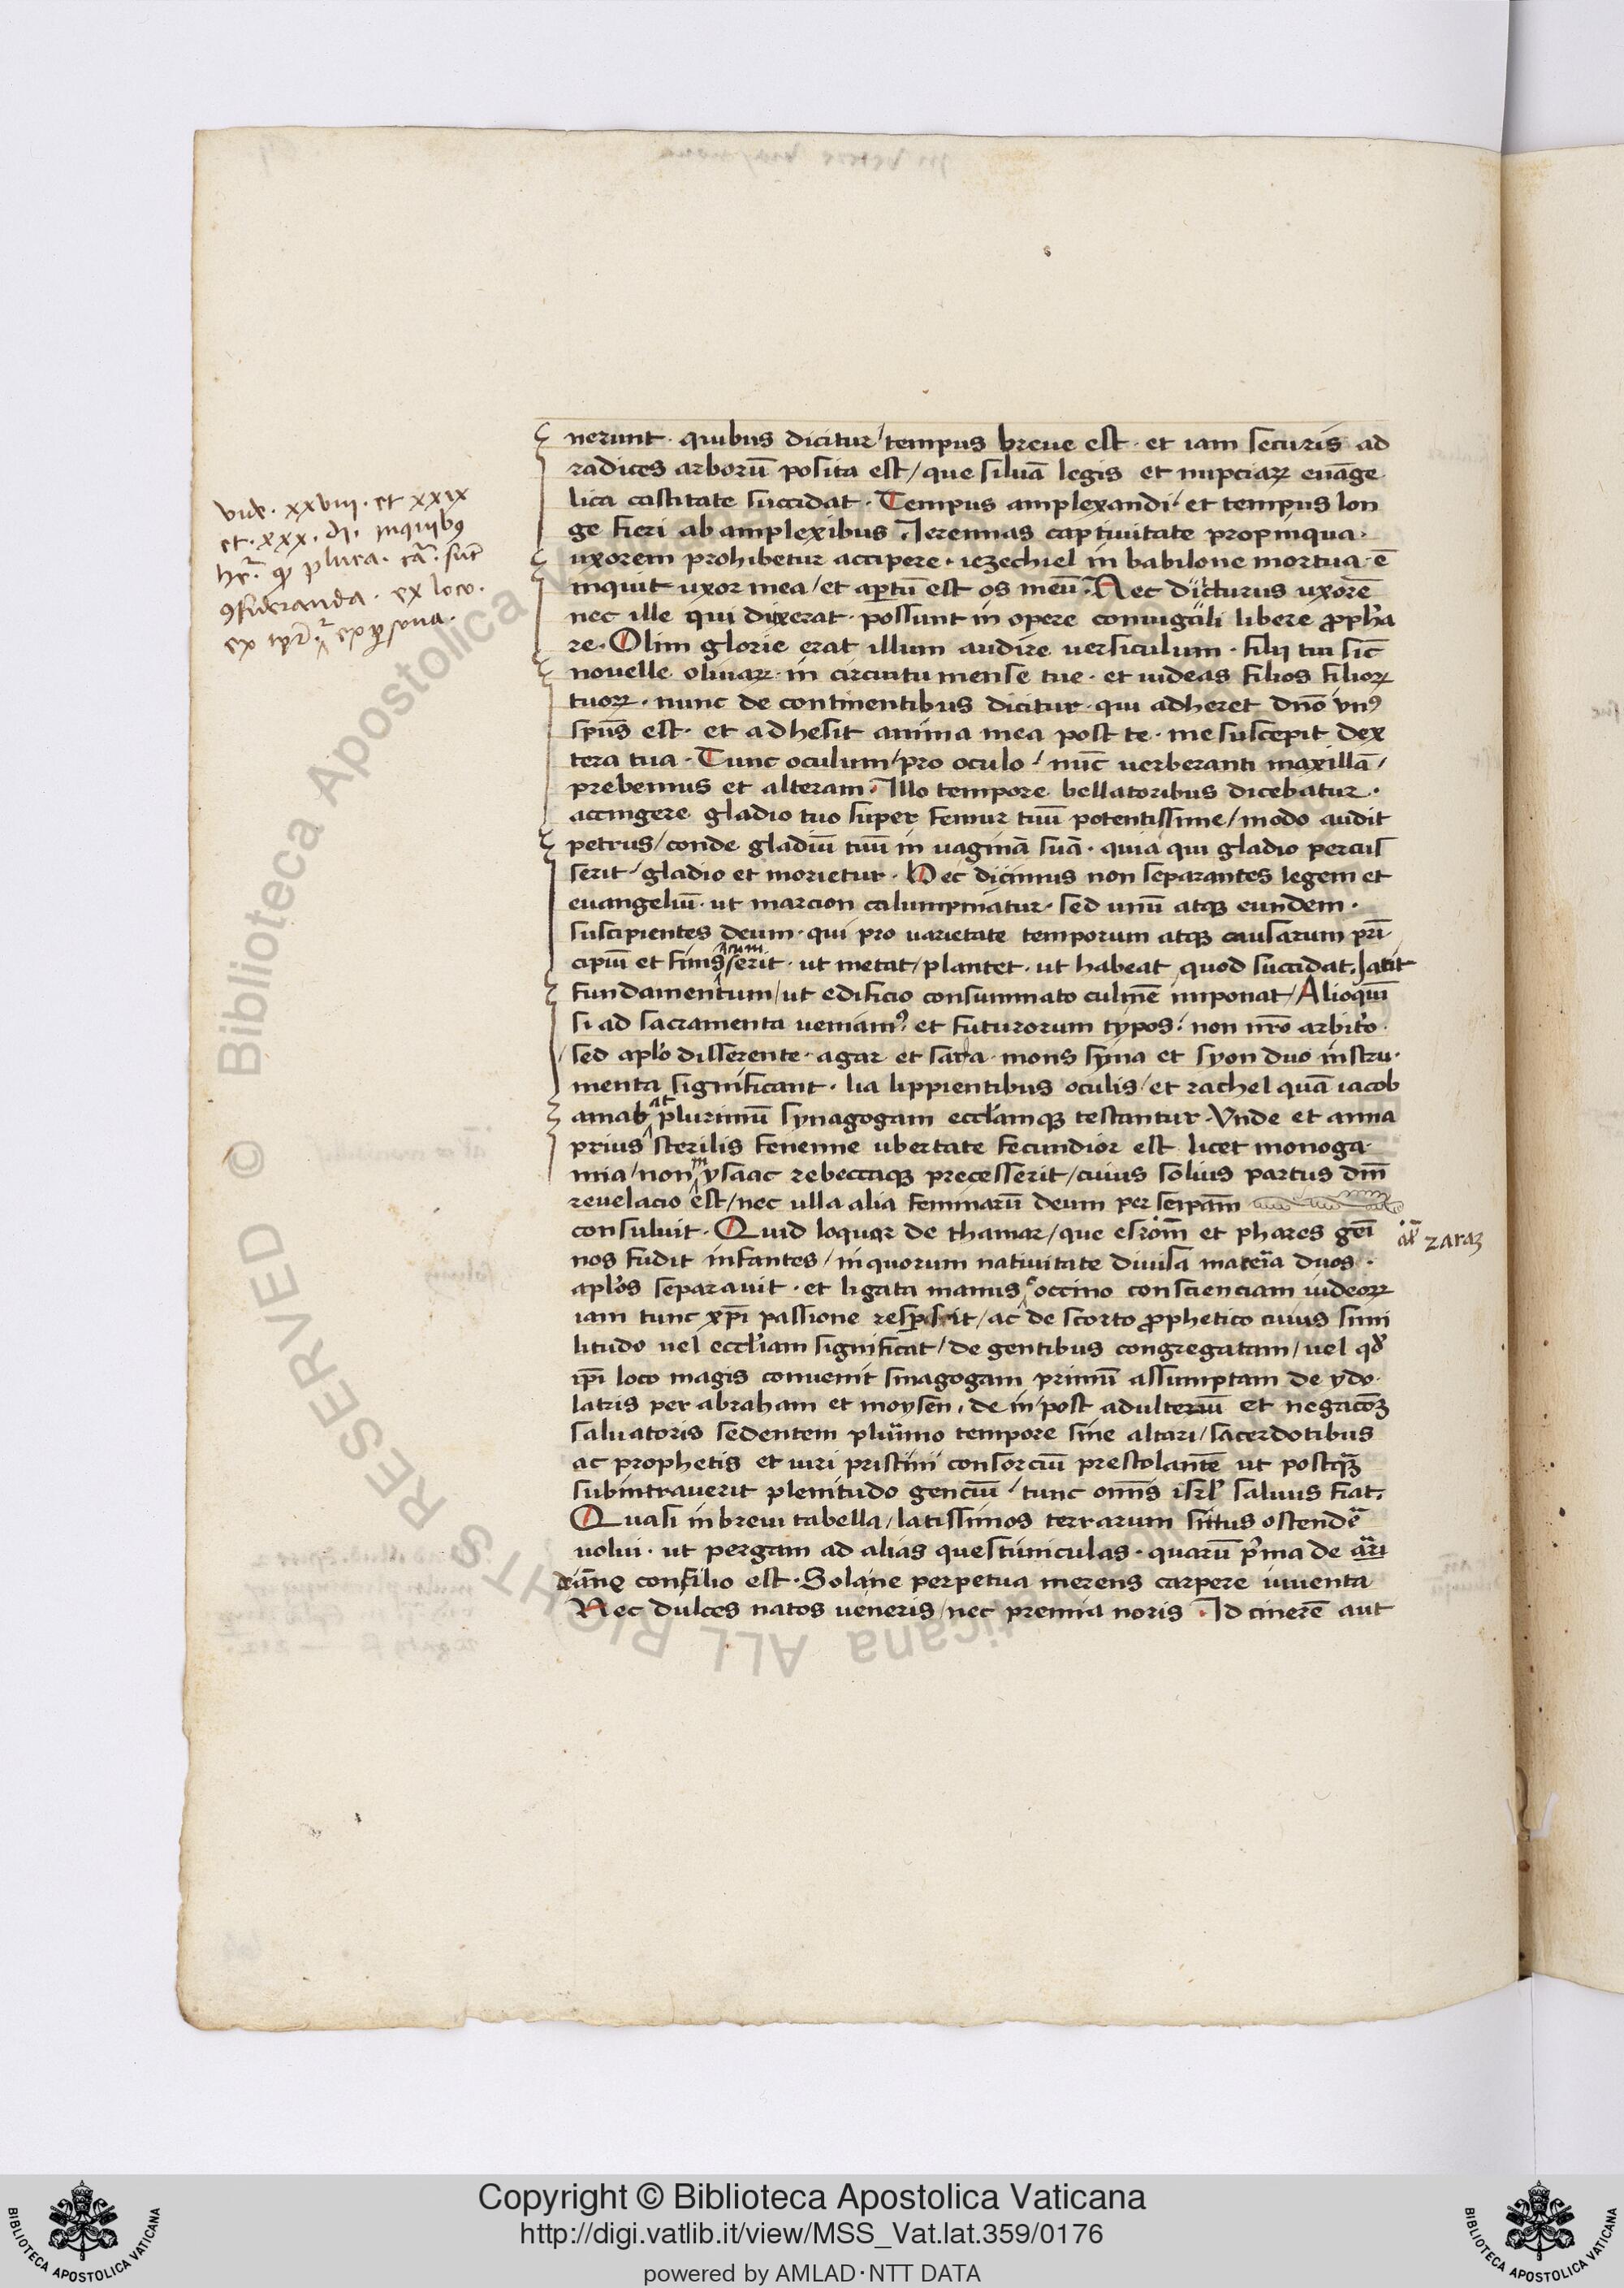 vide. xxviii. et xxix
et. xxx. di. inquibꝯ
hr̄. qͥ plura. cā. sūt
ꝯsideranda. ex loco.
ex tpr̄. ⁊ ex ꝑsona.
nerunt. quibus dicitur/tempus breue est. et iam securis ad
radices arborū posita est/que siluā legis et nupciaꝝ euāge
lica castitate succidat. Tempus amplexandi. et tempus lon
ge fieri ab amplexibus. Jeremias captiuitate propinqua.
uxorem prohibetur accipere. iezechiel in babilone mortua. ē
inquit uxor mea/et aꝑtū est os meū. Nec ducturus uxorē
nec ille qui duxerat. possunt in opere coniugali libere ꝓpħa
re. Olim glorie erat illum audire uersiculum. filij tui sic̄
nouelle oliuaꝝ. in circuitu mense tue. et uideas filios filioꝝ
tuoꝝ. nunc de continentibus dicitur. qui adheret dn̄o vnꝯ
sp̄us est. et adhesit anima mea post te. me suscepit dex
tera tua. Tunc oculum/pro oculo/nūc uerberanti maxillā/
prebemus et alteram. Illo tempore bellatoribus dicebatur.
accingere gladio tuo super femur tuū potentissime/modo audit
petrus/conde gladiū tuū in uaginā suā. quia qui gladio percus
serit/gladio et morietur. Hec dicimus non separantes legem et
euangeliū. ut marcion calumpniatur. sed unū atqꝫ eundem.
suscipientes deum. qui pro uarietate temporum atqꝫ causarum pri
cipiū et finis serit. ut metat/plantet. ut habeat quod succidat. Iacit
fundamentum/ut edificio consummato culmē imponat/Alioqui
si ad sacramenta ueniamꝯ et futurorum typos. non nr̄o arbit̓o.
sed apl̓o disserente. agar et sara. mons syna et syon duo instru.
menta significant. lia lippientibus oculis/et rachel quā iacob
amabat plurimū synagogam eccl̓amqꝫ testantur. Vnde et anna
prius sterilis fenenne ubertate fecundior est. licet monoga
mia/non ysaac rebeccaqꝫ precesserit/cuius solius partus dn̄i
reuelacio est/nec ulla alia feminarū deum per seip̄am
consuluit. Quid loquar de thamar/que esrom̄ et phares gei
al̓ zaraꝫ
nos fudit infantes/in quorum natiuitate diuisa materia duos.
apl̓os separauit. et ligata manus coccino conscienciam iudeoꝝ
iam tunc xp̄i passione resꝑsit/ac de scorto ꝓphetico cuius simi
litudo uel eccl̓iam significat/de gentibus congregatam/uel qd̓
ip̄i loco magis conuenit sinagogam primū assumptam de ydo
latris per abraham et moysen. de in post adulteriū et negacōꝫ
saluatoris sedentem plurimo tempore sine altari/sacerdotibus
ac prophetis et uiri pristini consorciū prestolantē ut postq̄ꝫ
subintrauerit plenitudo genciū/tunc om̄is isrl̓ saluus fiat.
Quasi in breui tabella/latissimos terrarum situs ostendē
uolui. ut pergam ad alias questiunculas. quarū p̓ma de ari
deāne consilio est. Solane perpetua merens carpere iuuenta
Nec dulces natos ueneris/nec premia noris. Id cinerē aut
Copyright © Biblioteca Apostolica Vaticana
http://digi.vatlib.it/view/MSS_Vat.lat.359/0176
powered by AMLAD·NTT DATA
BIBLIOTECA APOSTOLICA VATICANA
BIBLIOTECA APOSTOLICA VATICANA